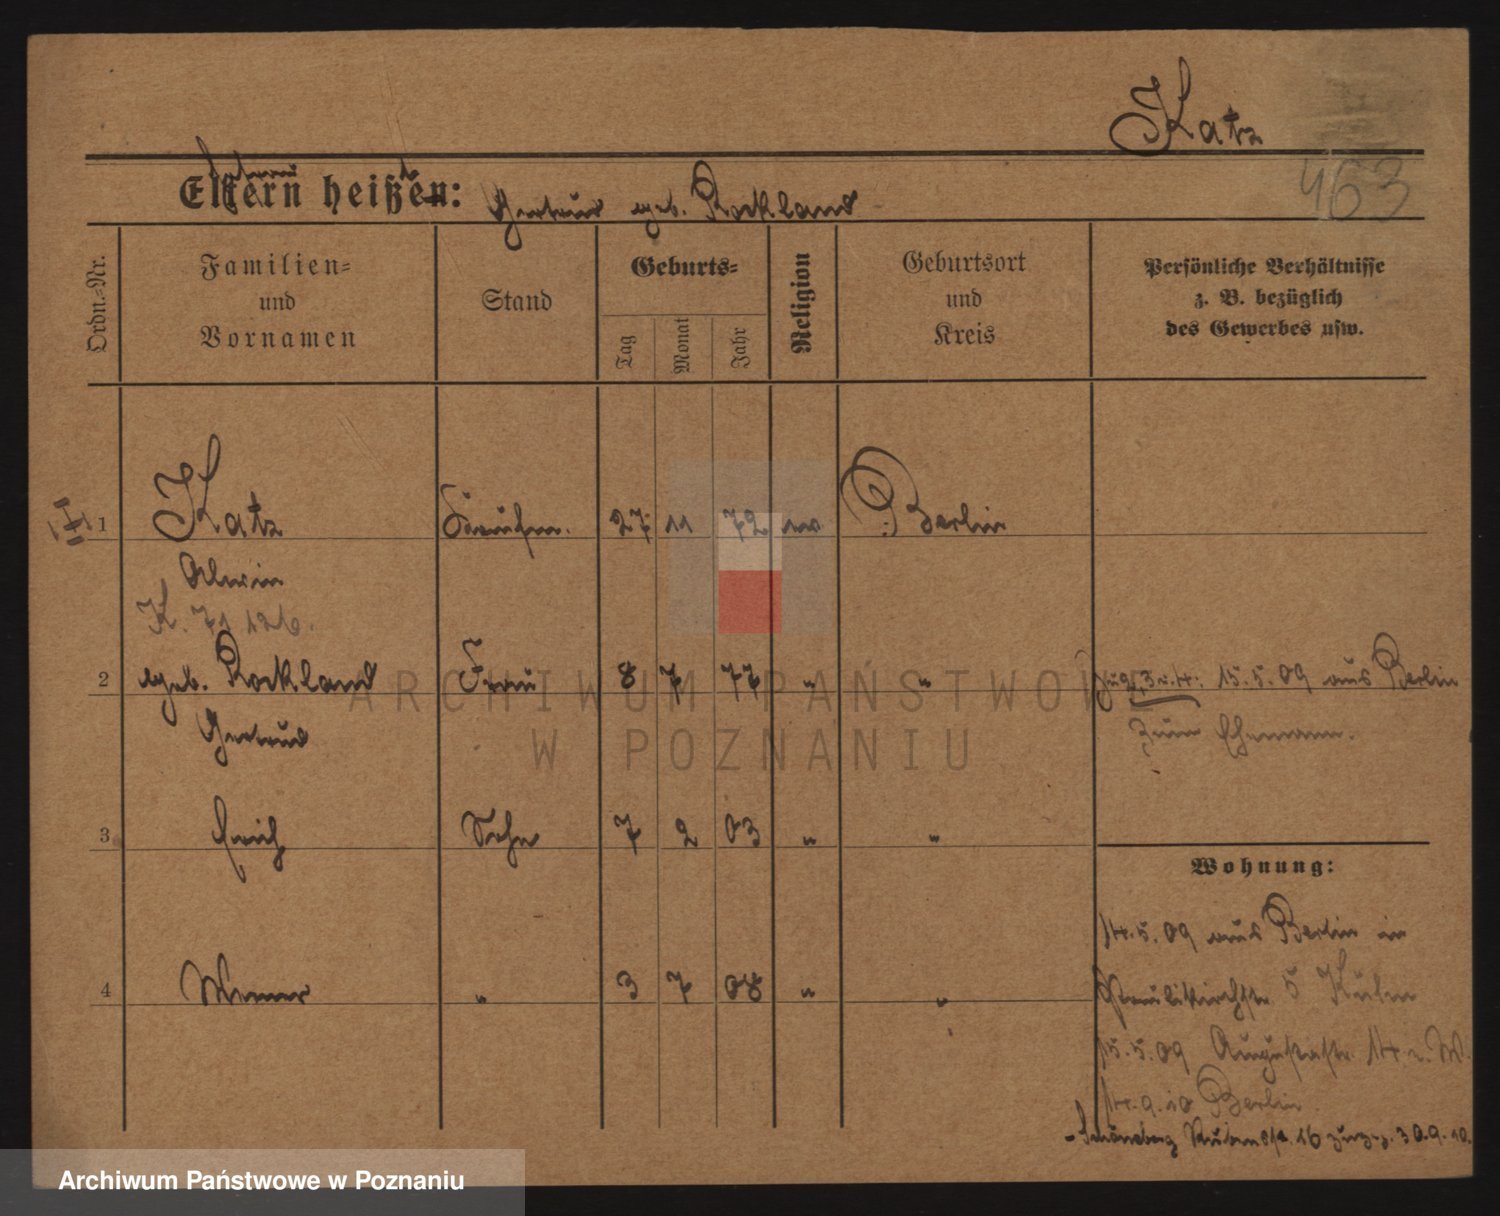 Katz
463
Eltern heißen: Gertrud geb. Rockland
Ordn.-Nr.
Familien-
und
Vornamen
Stand
Geburts-
Tag
Monat
Jahr
Religion
Geburtsort
und
Kreis
Persönliche Verhältnisse
z. B. bezüglich
des Gewerbes usw.
1 Katz Kaufm. 27 11 72 Berlin
Alwin
K. 71
2 geb. Rockland Frau 8 7 77 " " 15.5.09 aus Berlin
Gertrud zum Ehemann.
3 Erich Sohn 7 2 03 " "
Wohnung:
14.5.09 aus Berlin in
4 Werner " 3 7 08 " "
Paulikirchstr. 5
15.5.09 Augustastr. 14
14.9.10 Berlin
- Schöneberg 16 30.9.10.
ARCHIWUM PAŃSTWOWE
W POZNANIU
Archiwum Państwowe w Poznaniu